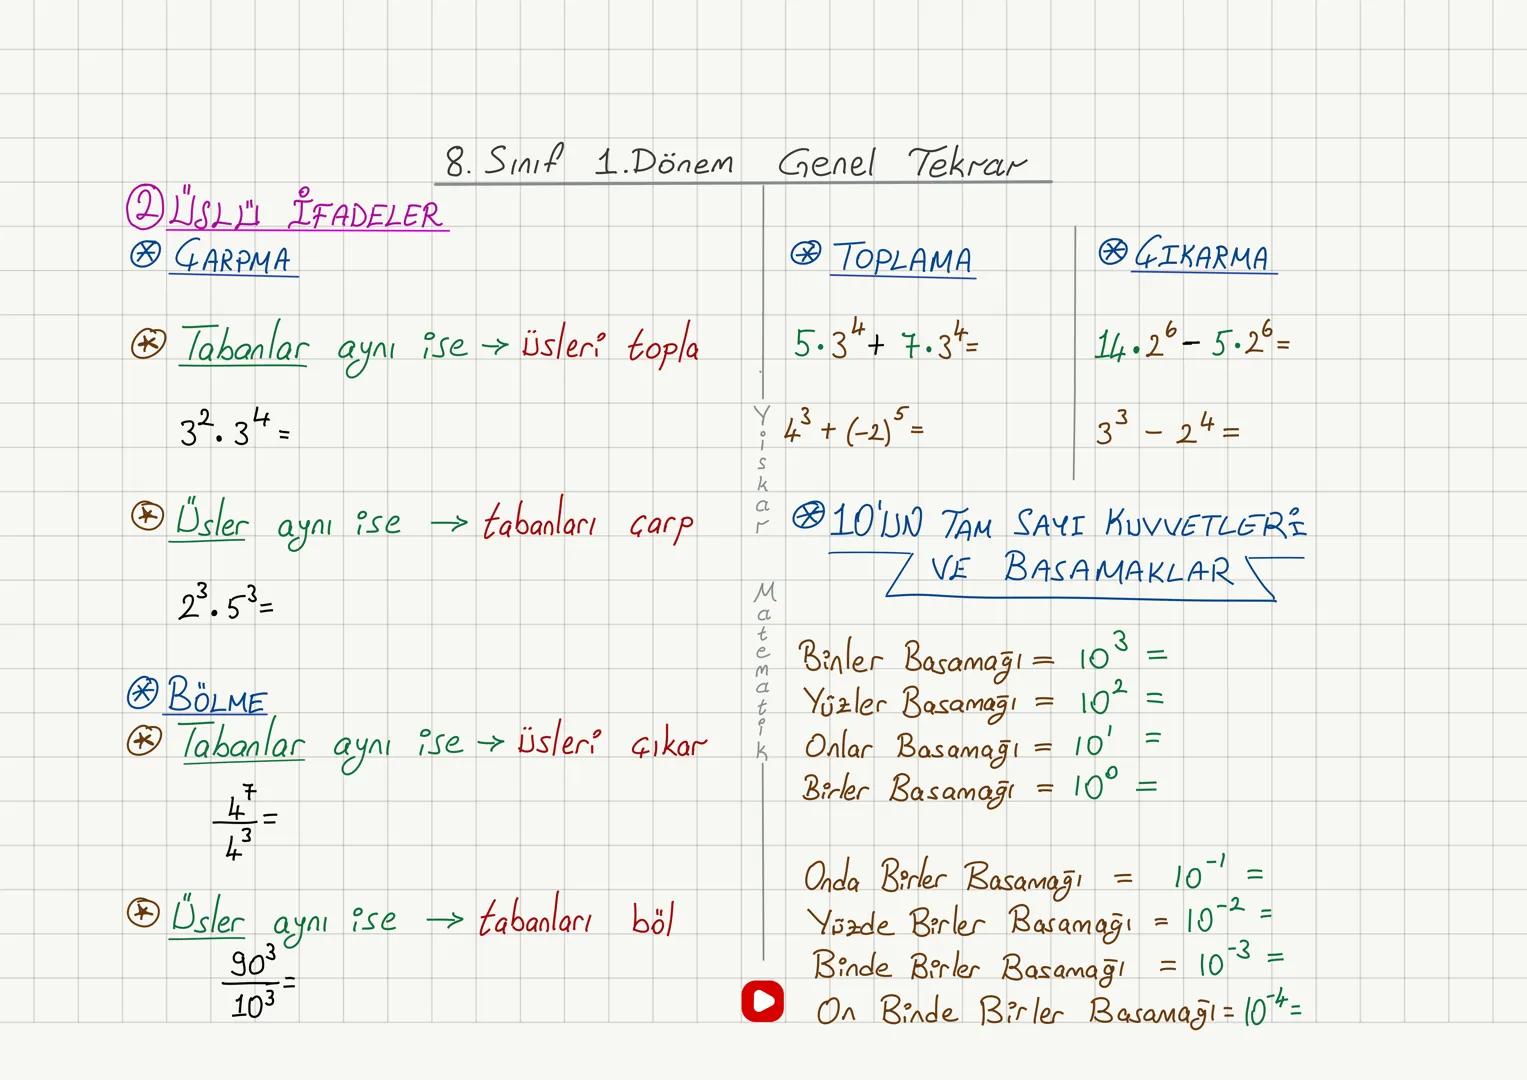 8. Sınıf 1.Dönem Genel Tekrar
② ÜSLÜ İFADELER
⊛ ÇARPMA
⊛ Tabanlar aynı ise → üsleri topla
3²·3⁴=
⊛ Üsler aynı ise → tabanları çarp
2³·5³=
⊛ BÖLME
⊛ Tabanlar aynı ise → üsleri çıkar
4⁷/4³=
⊛ Üsler aynı ise → tabanları böl
90³/10³=
Yiskar Matematik
⊛ TOPLAMA
5·3⁴+ 7·3⁴=
4³+(-2)⁵=
⊛ ÇIKARMA
14·2⁶- 5·2⁶=
3³ - 2⁴=
⊛ 10'UN TAM SAYI KUVVETLERİ
VE BASAMAKLAR
Binler Basamağı = 10³ =
Yüzler Basamağı = 10² =
Onlar Basamağı = 10¹ =
Birler Basamağı = 10⁰ =
Onda Birler Basamağı = 10⁻¹ =
Yüzde Birler Basamağı = 10⁻² =
Binde Birler Basamağı = 10⁻³ =
On Binde Birler Basamağı= 10⁻⁴=